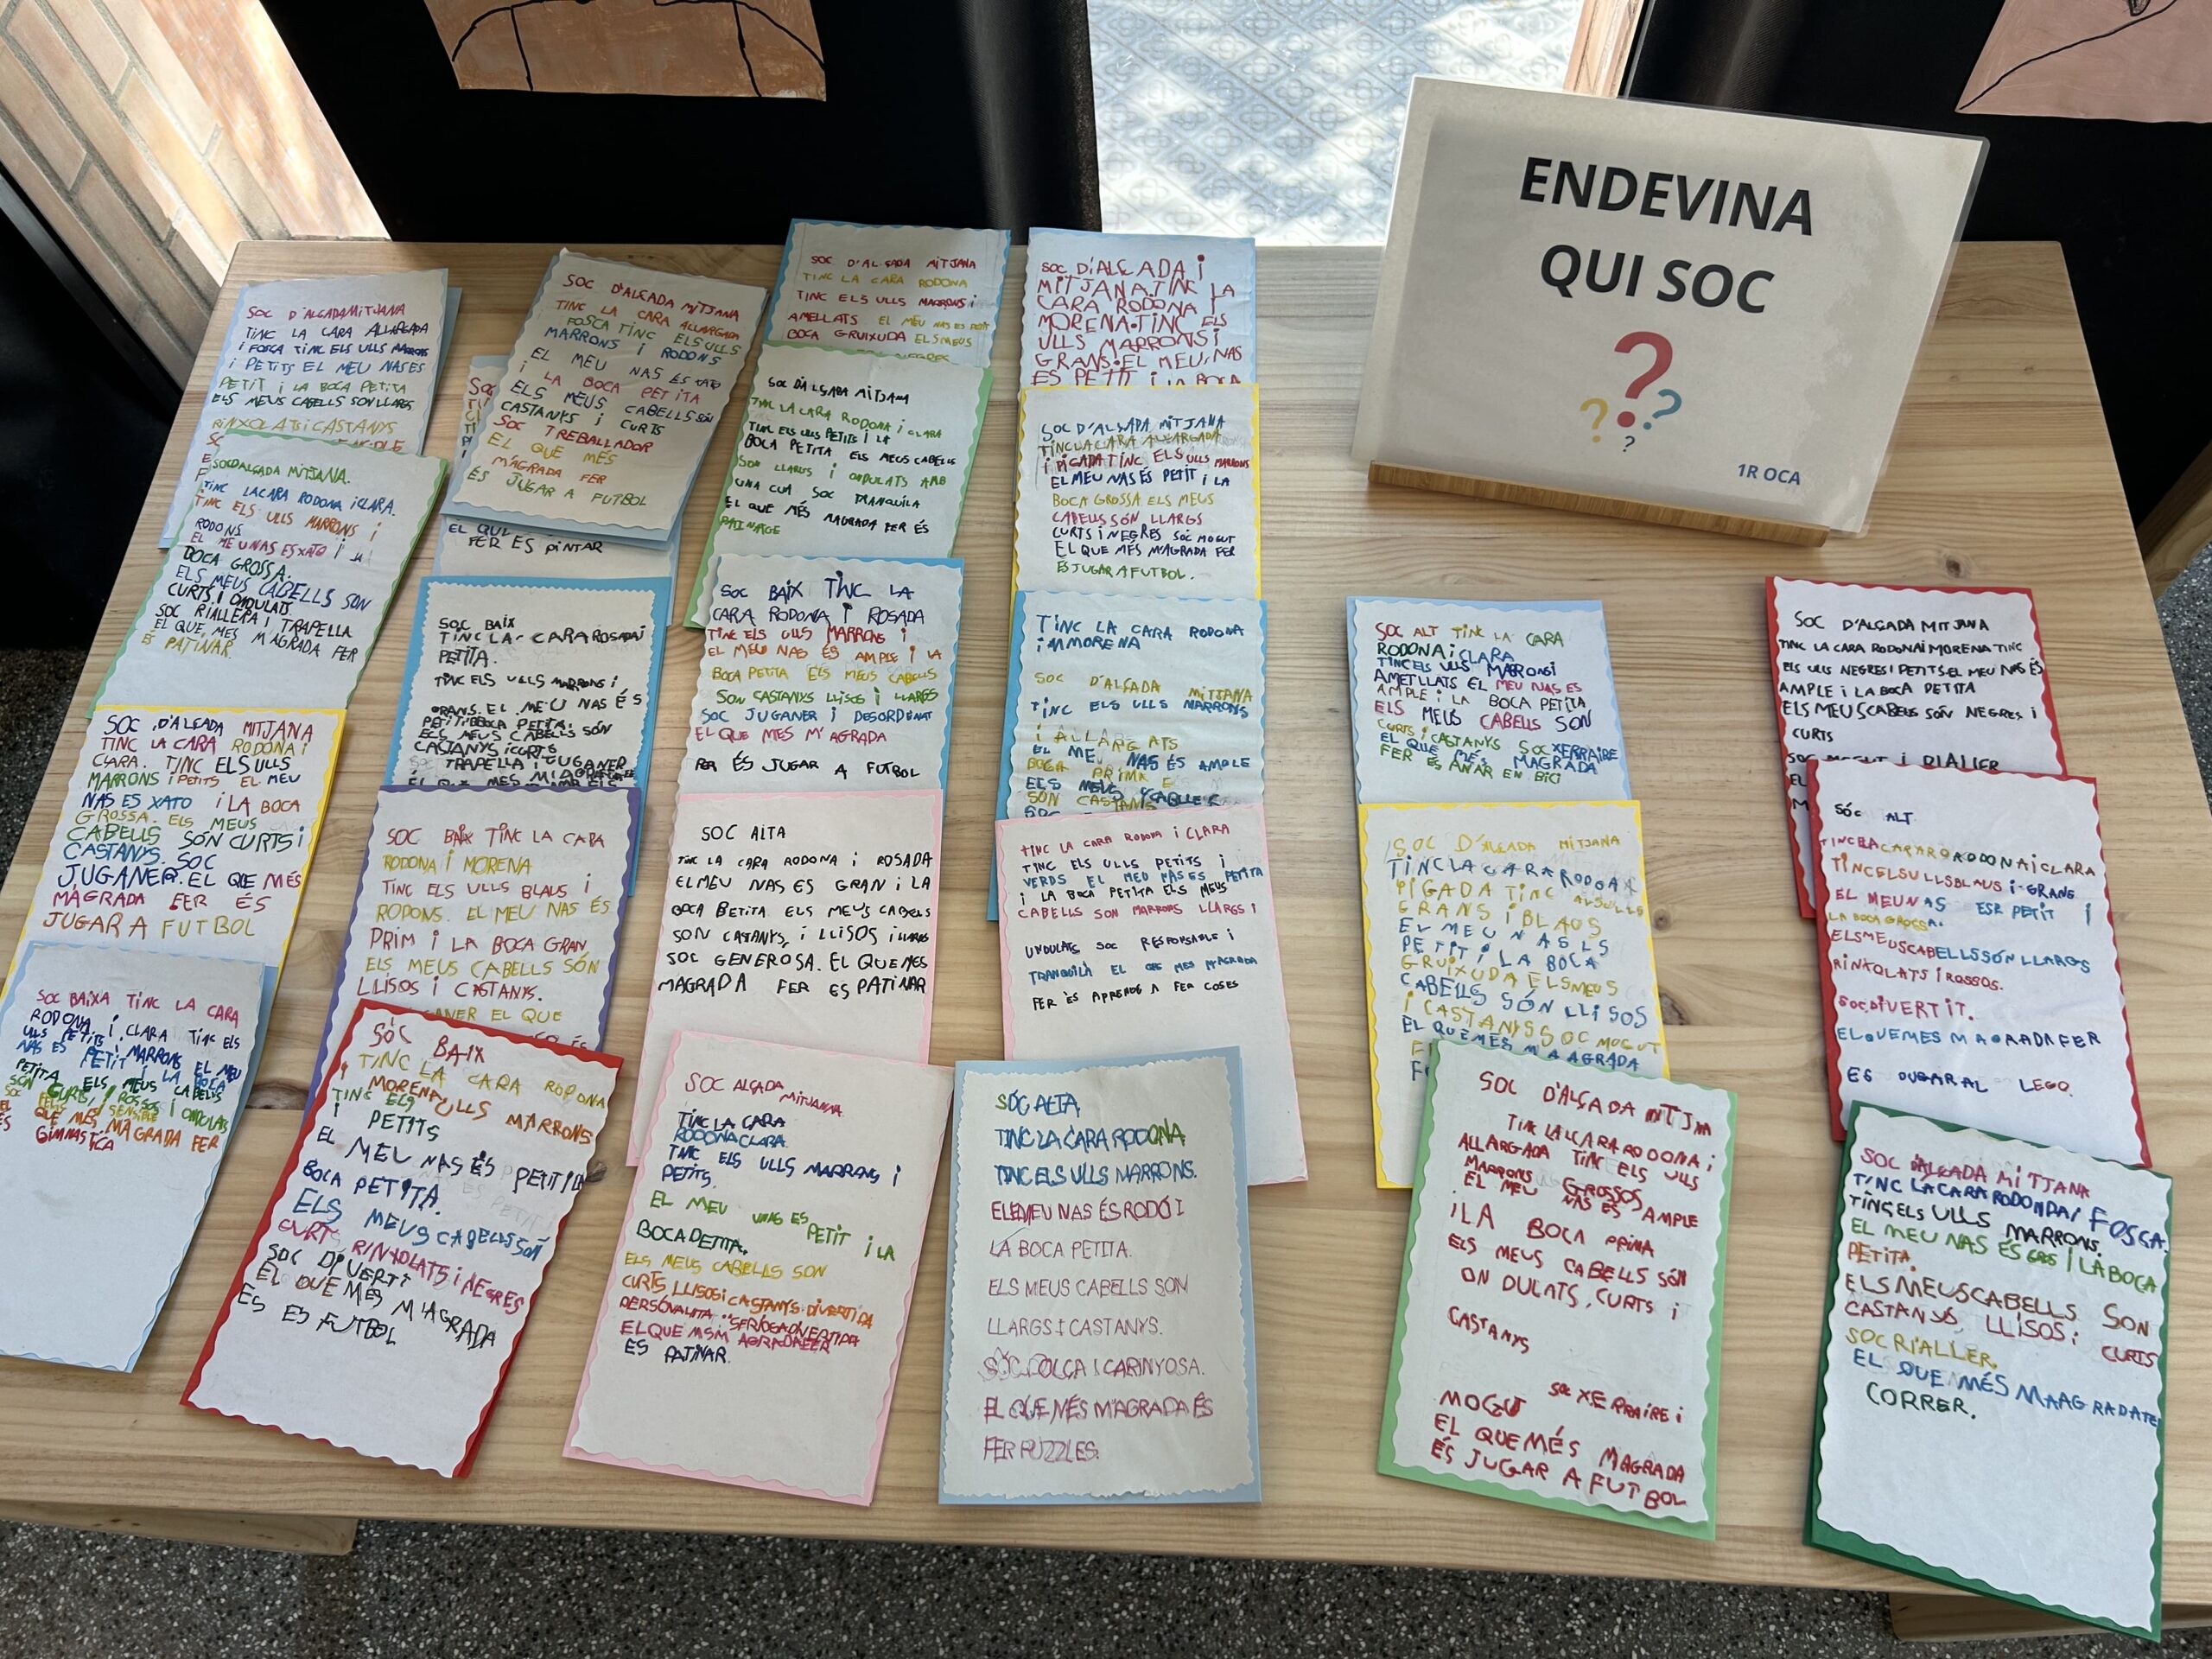 ENDEVINA
QUI SOC
?
? ? ?
1R OCA
SOC D'ALÇADA MITJANA
TINC LA CARA ALLARGADA
I FOSCA TINC ELS ULLS MARRONS
I PETITS EL MEU NAS ES
PETIT I LA BOCA PETITA
ELS MEUS CABELLS SON LLARGS
RINXOLATS I CASTANYS
SOC D'ALÇADA MITJANA.
TINC LA CARA RODONA I CLARA.
TINC ELS ULLS MARRONS I
RODONS
EL MEU NAS ES XATO I
BOCA GROSSA.
ELS MEUS CABELLS SON
CURTS I ONDULATS
SOC RIALLERA I TRAPELLA
EL QUE MES M'AGRADA FER
ES PATINAR.
SOC D'ALÇADA MITJANA
TINC LA CARA RODONA I
CLARA. TINC ELS ULLS
MARRONS I PETITS EL MEU
NAS ES XATO I LA BOCA
GROSSA. ELS MEUS
CABELLS SÓN CURTS I
CASTANYS. SOC
JUGANER. EL QUE MÉS
MAGRADA FER ÉS
JUGAR A FUTBOL
SOC BAIXA TINC LA CARA
RODONA I CLARA TINC ELS
ULLS PETITS I MARRONS EL MEU
NAS ES PETIT I LA BOCA
PETITA ELS MEUS CABELLS
SÓN CURTS I ROSSOS I ONDULATS
SOC SENSIBLE
EL QUE MES MAGRADA FER
ES GIMNASTICA
SOC D'ALÇADA MITJANA
TINC LA CARA ALLARGADA
FOSCA TINC ELS ULLS
MARRONS I RODONS
EL MEU NAS ES XATO
I LA BOCA PETITA
ELS MEUS CABELLS SÓN
CASTANYS I CURTS
SOC TREBALLADOR
EL QUE MÉS
M'AGRADA FER
ÉS JUGAR A FUTBOL
EL QUE
FER ES PINTAR
SOC BAIX
TINC LA CARA ROSADA I
PETITA.
TINC ELS ULLS MARRONS I
GRANS. EL MEU NAS ÉS
PETIT I BOCA PETITA.
ELS MEUS CABELLS SÓN
CASTANYS I CURTS
TRAPELLA I GUGANER
SOC BAIX TINC LA CARA
RODONA I MORENA
TINC ELS ULLS BLAUS I
RODONS. EL MEU NAS ÉS
PRIM I LA BOCA GRAN
ELS MEUS CABELLS SÓN
LLISOS I CASTANYS.
GANER EL QUE
SÓC BAIX
TINC LA CARA RODONA
I MORENA
TINC ELS ULLS MARRONS
I PETITS
EL MEU NAS ÉS PETIT I LA
BOCA PETITA.
ELS MEUS CABELLS SÓN
CURTS RINXOLATS I NEGRES
SOC DIVERTI
EL QUE MÉS M'AGRADA
ES ES FUTBOL
SOC D'ALÇADA MITJANA
TINC LA CARA RODONA
TINC ELS ULLS MARRONS I
AMELLATS EL MEU NAS ES PETIT
BOCA GRUIXUDA ELS MEUS
SOC D'ALÇADA MITJANA
TINC LA CARA RODONA I CLARA
TINC ELS ULLS PETITS I LA
BOCA PETITA ELS MEUS CABELLS
SON LLARGS I ONDULATS AMB
UNA CUA SOC TRANQUILA
EL QUE MÉS MAGRADA FER ÉS
PATINATGE
SOC BAIX TINC LA
CARA RODONA I ROSADA
TINC ELS ULLS MARRONS I
EL MEU NAS ÉS AMPLE I LA
BOCA PETITA ELS MEUS CABELLS
SON CASTANYS LLISOS I LLARGS
SOC JUGANER I DESORDENAT
EL QUE MES M'AGRADA
FER ÉS JUGAR A FUTBOL
SOC ALTA
TINC LA CARA RODONA I ROSADA
EL MEU NAS ES GRAN I LA
BOCA BETITA ELS MEUS CABELLS
SON CASTANYS, I LLISOS I LLARGS
SOC GENEROSA. EL QUE MES
MAGRADA FER ES PATINAR
SOC ALÇADA MITJANNA
TINC LA CARA
RODONA CLARA.
TINC ELS ULLS MARRONS I
PETITS.
EL MEU NAS ES PETIT I LA
BOCA PETITA.
ELS MEUS CABELLS SON
CURTS LLISOS I CASTANYS DIVERTIDA
PERSONALITA
EL QUE
ES PATINAR.
SOC D'ALÇADA I
MITJANA.TINC LA
CARA RODONA I
MORENA.TINC ELS
ULLS MARRONS I
GRANS.EL MEU NAS
ES PETIT I LA BOCA
SOC D'ALÇADA MITJANA
TINC LA CARA ALLARGADA
I PIGADA TINC ELS ULLS MARRONS
EL MEU NAS ÉS PETIT I LA
BOCA GROSSA ELS MEUS
CABELLS SÓN LLARGS
CURTS I NEGRES SOC MOGUT
EL QUE MÉS M'AGRADA FER
ÉS JUGAR A FUTBOL.
TINC LA CARA RODONA
I MMORENA
SOC D'ALÇADA MITJANA
TINC ELS ULLS MARRONS
I ALLARGATS
EL MEU NAS ÉS AMPLE
BOCA PRIMA
ELS MEUS CABELLS
SÓN CASTANYS
TINC LA CARA RODONA I CLARA
TINC ELS ULLS PETITS I
VERDS EL MEU NAS ES PETITA
I LA BOCA PETITA ELS MEUS
CABELLS SON MARRONS LLARGS I
UNDULATS SOC RESPONSABLE I
TRANQUILA EL QUE MES M'AGRADA
FER ÉS APRENDE A FER COSES
SÓC ALTA
TINC LA CARA RODONA
TINC ELS ULLS MARRONS.
EL MEU NAS ÉS RODÓ I
LA BOCA PETITA.
ELS MEUS CABELLS SON
LLARGS I CASTANYS.
SÓC DOLÇA I CARINYOSA.
EL QUE MÉS M'AGRADA ÉS
FER PUZZLES.
SOC ALT TINC LA CARA
RODONA I CLARA
TINC ELS ULLS MARRONS I
AMETLLATS EL MEU NAS ES
AMPLE I LA BOCA PETITA
ELS MEUS CABELLS SON
CURTS I CASTANYS SOC XERRAIRE
EL QUE MÉS MAGRADA
FER ÉS ANAR EN BICI
SOC D'ALÇADA MITJANA
TINC LA CARA RODONA
PIGADA TINC ELS ULLS
GRANS I BLAUS
EL MEU NAS ES
PETIT I LA BOCA
GRUIXUDA ELS MEUS
CABELLS SÓN LLISOS
I CASTANYS SOC MOGUT
EL QUE MÉS MAAGRADA
SOC D'ALÇADA MITJM
TINC LA CARA RODONA I
ALLARGADA TINC ELS ULLS
MARRONS GROSSOS
EL MEU NAS ES AMPLE
I LA BOCA PRIMA
ELS MEUS CABELLS SÓN
ONDULATS, CURTS I
CASTANYS
SOC XERRAIRE I
MOGUT
EL QUE MÉS MAGRADA
ÉS JUGAR A FUTBOL
SOC D'ALÇADA MITJANA
TINC LA CARA RODONA I MORENA TINC
ELS ULLS NEGRES I PETITS.EL MEU NAS ÉS
AMPLE I LA BOCA PETITA
ELS MEUS CABELLS SÓN NEGRES I
CURTS
SOC MOGUT I RIALLER
SÓC ALT
TINC LA CARA RODONA I CLARA
TINC ELS ULLS BLAUS I GRANS
EL MEU NAS ESR PETIT I
LA BOCA GROSSA.
ELS MEUS CABELLS SÓN LLARGS
RINXOLATS I ROSSOS.
SOC DIVERTIT.
EL QUE MES MAGRADA FER
ES OUGAR AL LEGO.
SOC D'ALÇADA MITJANA
TINC LA CARA RODONDA I FOSCA.
TINC ELS ULLS MARRONS.
EL MEU NAS ÉS GROS I LA BOCA
PETITA.
ELS MEUS CABELLS SON
CASTANYS, LLISOS I CURTS
SOC RIALLER.
EL QUE MÉS MAAGRADATE
CORRER.